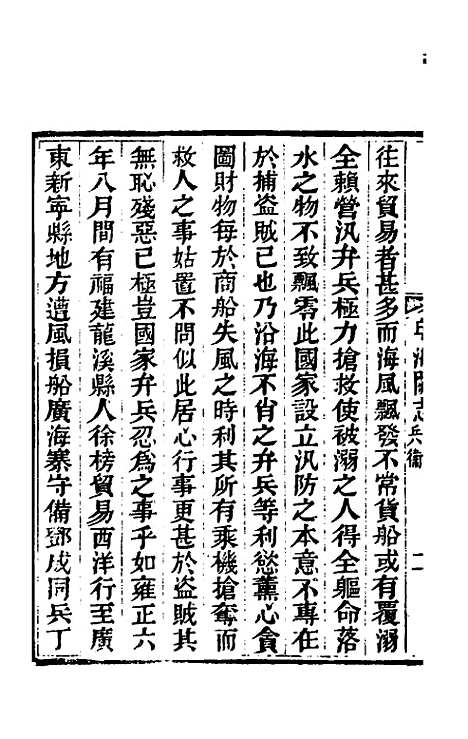 往來貿易者甚多而海風飄發不常貨船或有覆溺
全賴營汛弁兵極力搶救使被溺之人得全軀命落
水之物不致飄零此國家設立汛防之本意不專在
於捕盜賊已也乃沿海不肖之弁兵等利慾薰心貪
圖財物每於商船失風之時利其所有乘機搶奪而
救人之事姑置不問似此居心行事更甚於盜賊其
無恥殘惡已極豈國家弁兵忍為之事乎如雍正六
年八月間有福建龍溪縣人徐榜貿易西洋行至廣
東新寧縣地方遭風損船廣海寨守備鄧成同兵丁
海關志 兵衞